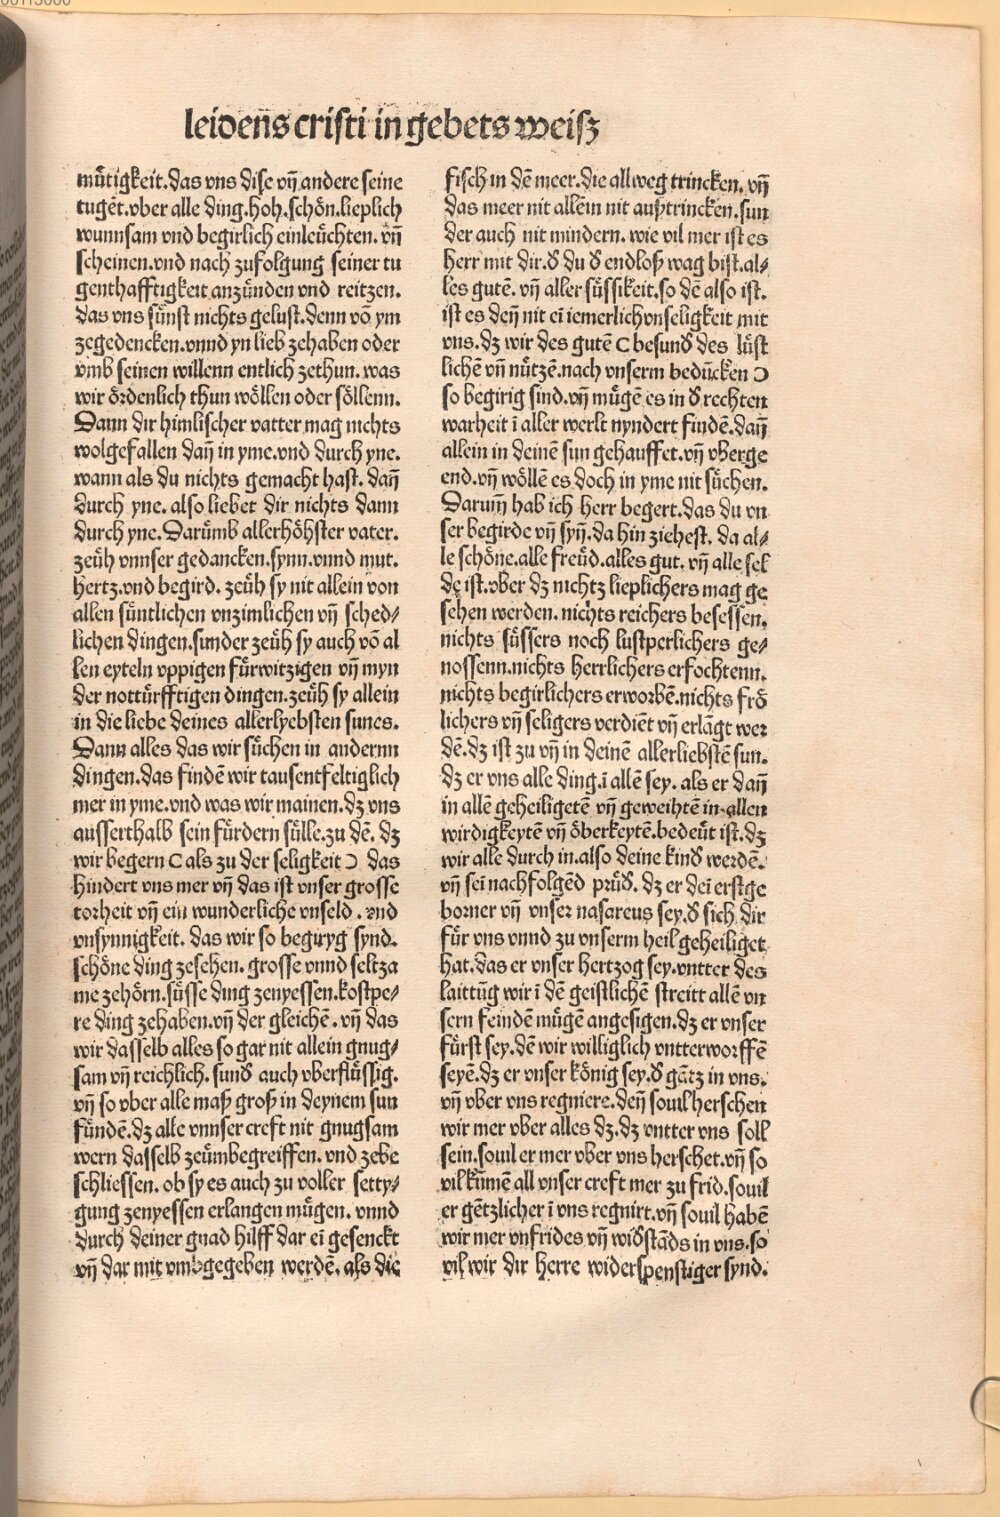 leidens̄ cristi in gebets weisz
mu̎tigkeit.das vns dise vn̄ andere seine
tugēt.vber alle ding.hoh.schön.lieplich
wunnsam vnd begirlich einleu̎chten.vn̄
scheinen.vnd nach zufolgung seiner tu
genthafftigkeit anzünden vnd reitzen.
das vns sünst nichts gelust.denn vō ym
zegedencken.vnnd yn lieb zehaben oder
vmb seinen willenn entlich zethun.was
wir ördenlich thun wöllen oder söllenn.
Dann dir himlischer vatter mag nichts
wolgefallen dan̄ in yme.vnd durch yne.
wann als du nichts gemacht hast.dan̄
durch yne.also liebet dir nichts dann
durch yne.Darümb allerhöhster vater.
zeüh vnnser gedancken.synn.vnnd mut.
hertz.vnd begird.zeüh sy nit allein von
allen süntlichen vnzimlichen vn̄ sched⸗
lichen dingen.sunder zeüh sy auch vō al
len eyteln vppigen fürwitzigen vn̄ myn
der nottürfftigen dingen.zeüh sy allein
in die liebe deines allerlyebsten sunes.
Dann alles das wir süchen in andernn
dingen.das findē wir tausentfeltiglich
mer in yme.vnd was wir mainen.dz vns
ausserthalb sein fürdern sülle.zu dē.dz
wir begern ( als zu der seligkeit ) das
hindert vns mer vn̄ das ist vnser grosse
torheit vn̄ ein wunderliche vnseld.vnd
vnsynnigkeit.das wir so begiryg synd.
schöne ding zesehen.grosse vnnd seltza
me zehörn.süsse ding zenyessen.kostpe⸗
re ding zehaben.vn̄ der gleichē.vn̄ das
wir dasselb alles so gar nit allein gnug⸗
sam vn̄ reichlich.sunđ auch vberflüssig.
vn̄ so vber alle maß groß in deynem sun
fündē.dz alle vnnser creft nit gnugsam
wern dasselb zeümbegreiffen.vnd zebe
schliessen.ob sy es auch zu voller setty⸗
gung zenyessen erlangen mügen.vnnd
durch deiner gnad hilff dar eī gesenckt
vn̄ dar mit vmbgegeben werdē.als die
fisch in dē meer.die allweg trincken.vn̄
das meer nit allein nit außtrincken.sun
der auch nit mindern.wie vil mer ist es
herr mit dir.đ du đ endloß wag bist.al⸗
les gutē.vn̄ aller süssikeit.so dē also ist.
ist es den̄ nit eī iemerlich vnseligkeit mit
vns.dz wir des gutē ( besunđ des lüst
lichē vn̄ nützē.nach vnserm bedu̎cken )
so begirig sind.vn̄ mügē es in đ rechten
warheit ī aller werlt nyndert findē.dan̄
allein in deinē sun gehauffet.vn̄ vberge
end.vn̄ wöllē es doch in yme nit süchen.
Darum̄ hab ich herr begert.das du vn
ser begirde vn̄ syn̄.da hin ziehest.da al⸗
le schöne.alle freüd.alles gut.vn̄ alle sel
dę ist.vber dz nichtz lieplichers mag ge
sehen werden.nichts reichers besessen.
nichts süssers noch lustperlichers ge⸗
nossenn.nichts herrlichers erfochtenn.
nichts begirlichers erworbē.nichts frö
lichers vn̄ seligers verdiēt vn̄ erlāgt wer
dē.dz ist zu vn̄ in deinē allerliebstē sun.
dz er vns alle ding.ī allē sey.als er dan̄
in allē geheiligetē vn̄ geweihtē in allen
wirdigkeytē vn̄ öberkeytē.bedeüt ist.dz
wir alle durch in.also deine kinđ werdē.
vn̄ sei nachfolgēd prüđ.dz er dei erstge
borner vn̄ vnser nasareus sey.đ sich dir
für vns vnnd zu vnserm heil geheiliget
hat.das er vnser hertzog sey.vntter des
laittūg wir ī dē geistlichē streitt allē vn
sern feindē mügē angesigen.dz er vnser
fürst sey.dē wir williglich vntterworffē
seyē.dz er vnser könig sey.đ gātz in vns.
vn̄ vber vns regniere.den̄ souil herschen
wir mer vber alles dz.dz vntter vns soll
sein.souil er mer vber vns herschet.vn̄ so
vil kūmē all vnser creft mer zu frid.souil
er gētzlicher ī vns regnirt.vn̄ souil habē
wir mer vnfrides vn̄ wiđstāds in vns.so
vil wir dir herre widerspenstiger synd.